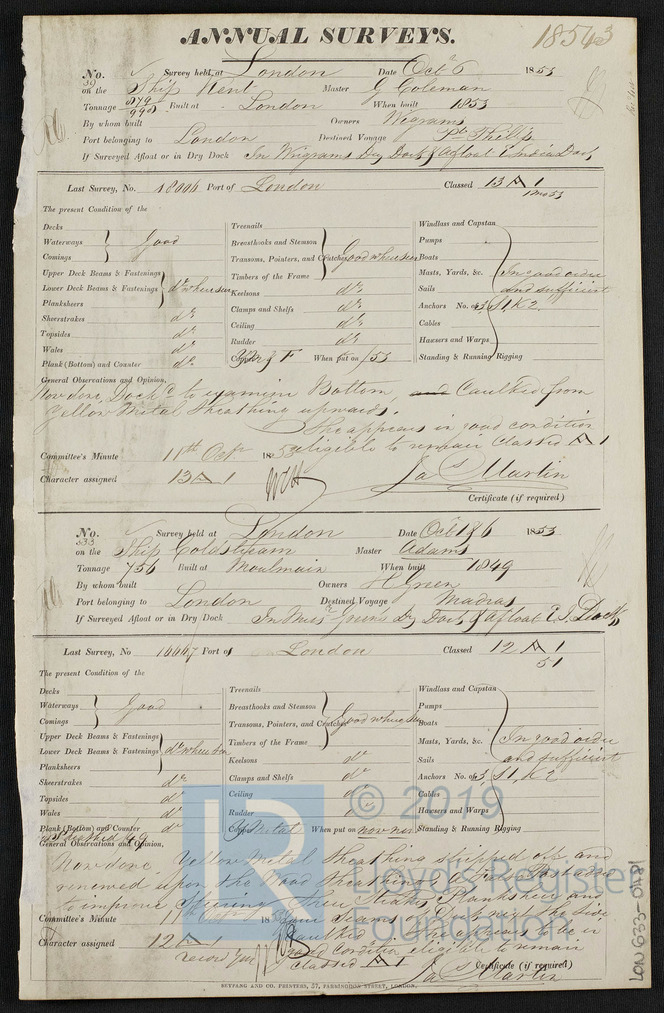 ANNUAL SURVEYS.
18543
No. 39 Survey held at London Date Oct 6 1853
on the Ship Kent Master G Coleman
Tonnage Built at London When built 1853
By whom built Owners Wigrams
Port belonging to London Destined Voyage Pt Phillip
If Surveyed Afloat or in Dry Dock In Wigrams Dry Dock & afloat E India Dock
Last Survey, No. 18006 Port of London Classed 13 A 1
The present Condition of the
Decks
Waterways
Comings
Good
Upper Deck Beams & Fastenings
Lower Deck Beams & Fastenings
Planksheers
do where seen
Sheerstrakes do
Topsides do
Wales do
Plank (Bottom) and Counter do
Treenails
Breasthooks and Stemson
Transoms, Pointers, and Crutches
Timbers of the Frame
Good where seen
Keelsons do
Clamps and Shelfs do
Ceiling do
Rudder do
Copper YM & F When put on /53
Windlass and Capstan
Pumps
Boats
Masts, Yards, &c.
Sails
In good order
and sufficient
Anchors No. of 3, S1, K2
Cables
Hawsers and Warps
Standing & Running Rigging
General Observations and Opinion,
Now done, Dockd to examine Bottom, and Caulked from
Yellow Metal Sheathing upwards.
She appears in good condition
eligible to remain Classed A 1
Committee's Minute 11th Octr 1853
Character assigned 13 A 1
Jas Martin
Certificate (if required)
No. 533 Survey held at London Date Oct 1 & 6 1853
on the Ship Coldstream Master Adams
Tonnage 756 Built at Moulmain When built 1849
By whom built Owners H Green
Port belonging to London Destined Voyage Madras
If Surveyed Afloat or in Dry Dock In Messrs Greens Dry Dock & afloat E I Docks
Last Survey, No 16667 Port of London Classed 12 A 1
51
The present Condition of the
Decks
Waterways
Comings
Good
Upper Deck Beams & Fastenings
Lower Deck Beams & Fastenings
Planksheers
do where seen
Sheerstrakes do
Topsides do
Wales do
Plank (Bottom) and Counter do
Treenails
Breasthooks and Stemson
Transoms, Pointers, and Crutches
Timbers of the Frame
Good where seen
Keelsons do
Clamps and Shelfs do
Ceiling do
Rudder
Copper Y Metal When put on now
Windlass and Capstan
Pumps
Boats
Masts, Yards, &c.
Sails
In good order
and sufficient
Anchors No. of 3, S1, K2
Cables
Hawsers and Warps
Standing & Running Rigging
General Observations and Opinion,
Now done, Yellow Metal Sheathing stripped off and
renewed upon the Wood Sheathing
to improve Planksheer and
Committee's Minute 18
Character assigned 12 A 1
Caulked appears to be in
good Condition eligible to remain
Classed A 1
Certificate (if required)
Jas Martin
SEYFANG AND CO. PRINTERS, 57, FARRINGDON STREET, LONDON.
© 2019
Lloyd's Register
Foundation
LR
LON 633-0481